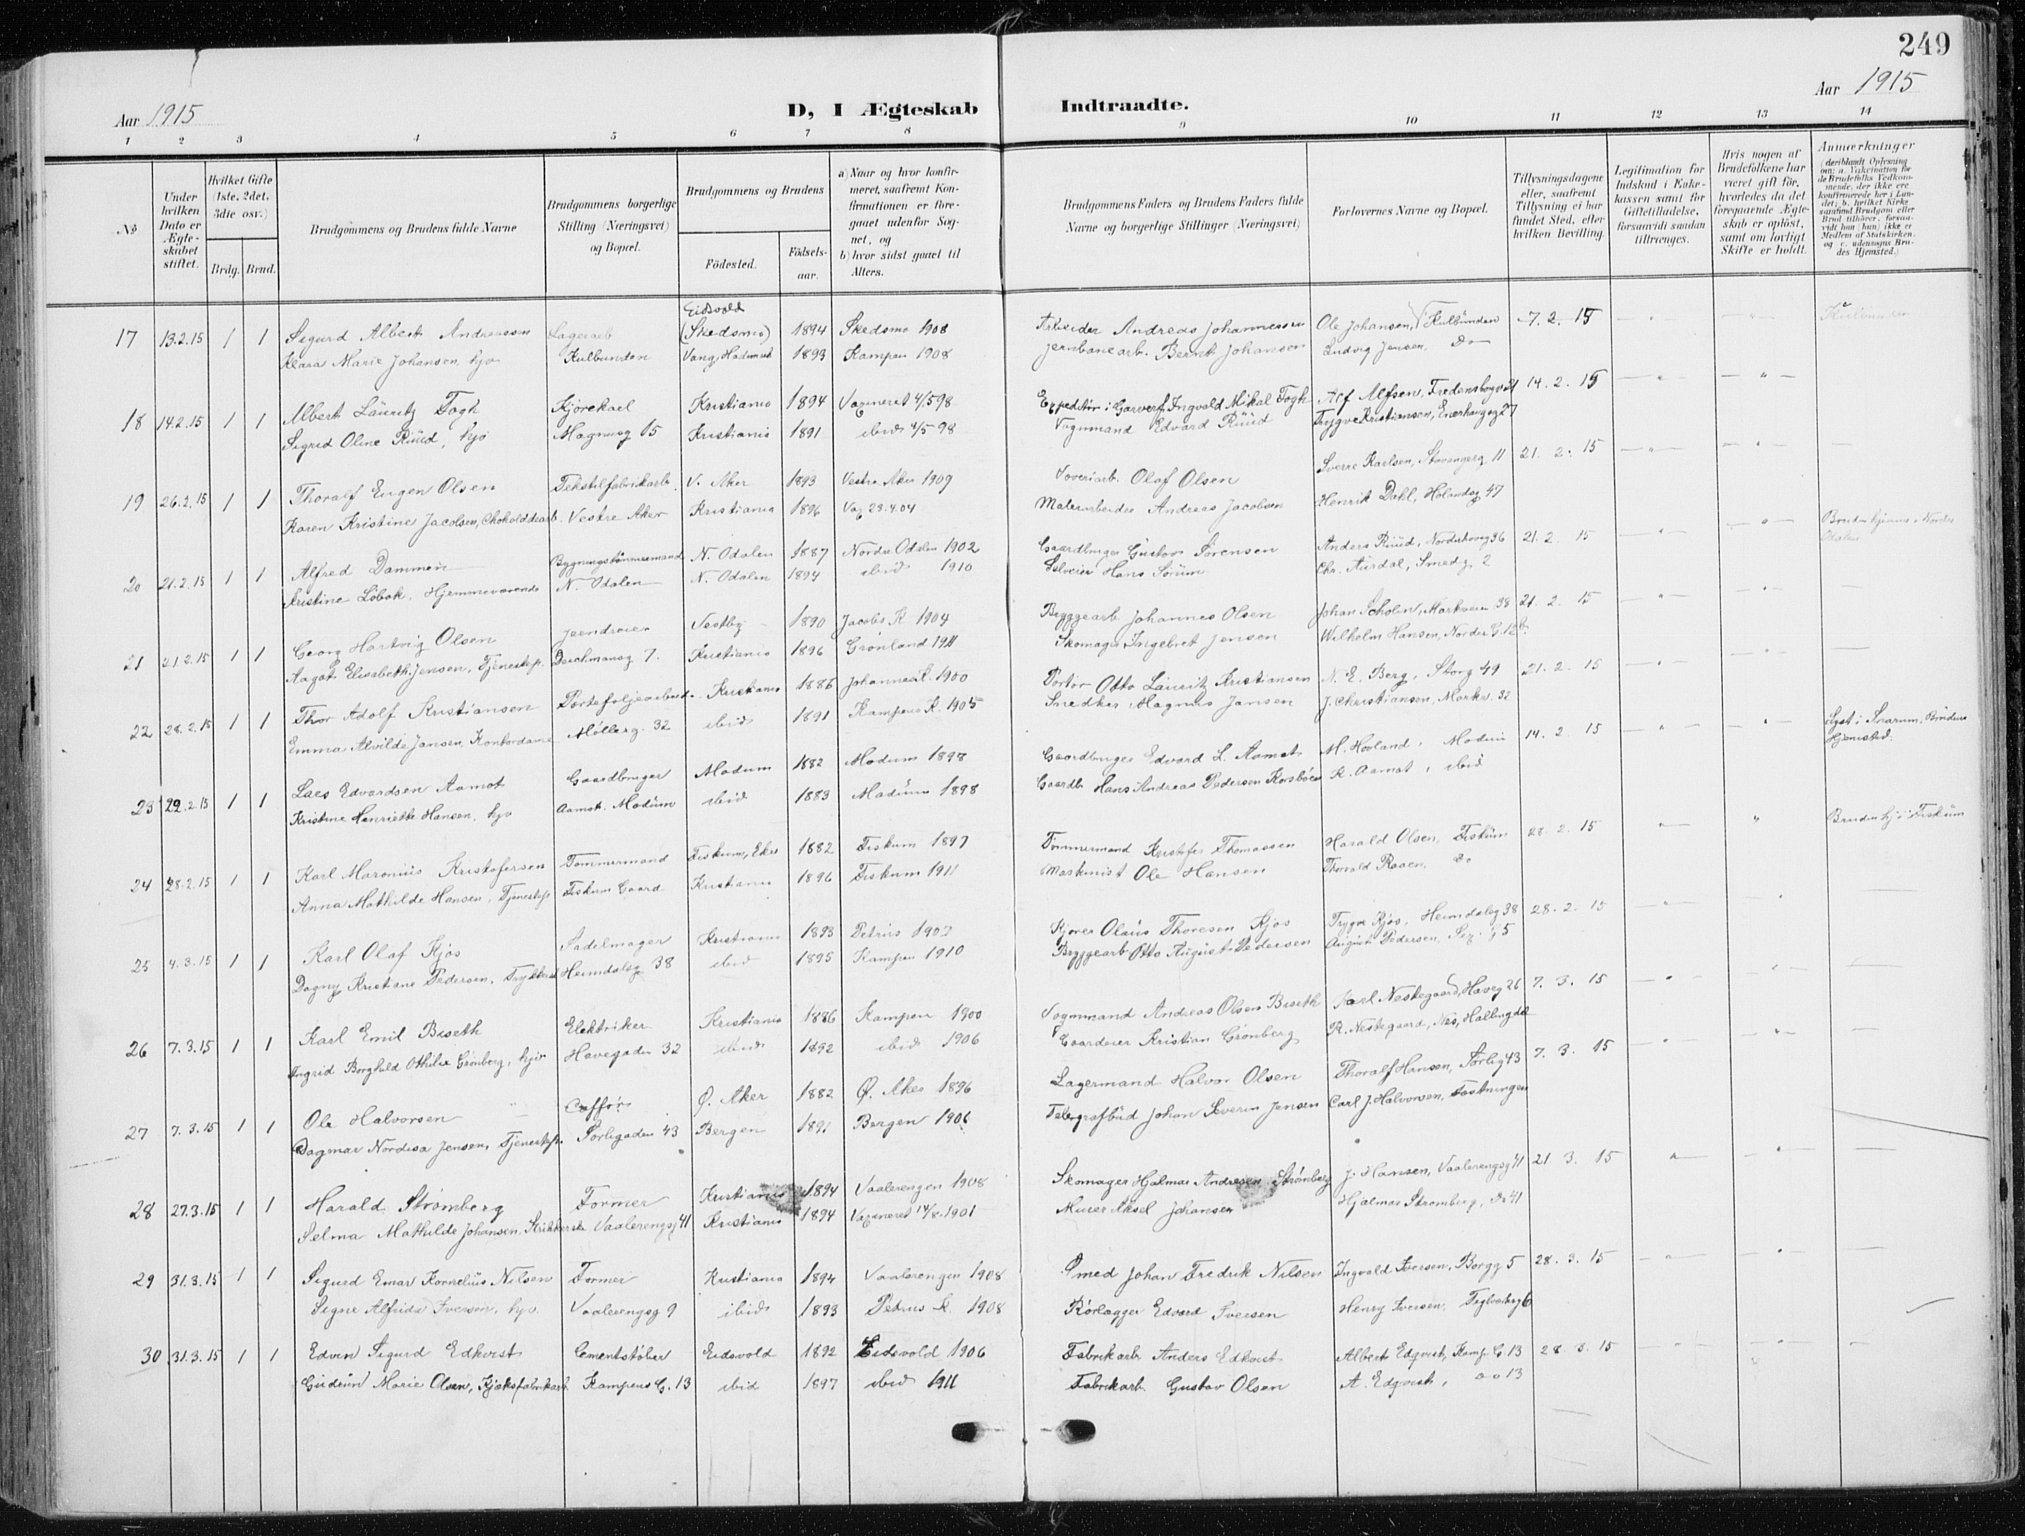 249
Aar 1915
D, I Ægteskab Indtraadte.
Aar 1915
1 2 3 4 5 6 7 8 9 10 11 12 13 14
No
Under hvilken Dato er Ægteskabet stiftet.
Hvilket Gifte (1ste, 2det, 3die osv.)
Brdg. Brud.
Brudgommens og Brudens fulde Navne
Brudgommens borgerlige Stilling (Næringsvei) og Bopæl.
Brudgommens og Brudens
Födested. Födselsaar.
a) Naar og hvor konfirmeret, saafremt Konfirmationen er foregaaet udenfor Sognet, og
b) hvor sidst gaaet til Alters.
Brudgommens Faders og Brudens Faders fulde Navne og borgerlige Stillinger (Næringsvei)
Forlovernes Navne og Bopæl.
Tillysningsdagene eller, saafremt Tillysning ei har fundet Sted, efter hvilken Bevilling.
Legitimation for Indskud i Enkekassen samt for Giftetilladelse, forsaavidt saadan tiltrænges.
Hvis nogen af Brudefolkene har været gift för, hvorledes da det foregaaende Ægteskab er oplöst, samt om lovligt Skifte er holdt.
Anmærkninger
(deriblandt Oplysning om: a. Vakcination for de Brudefolks Vedkommende, der ikke ere konfirmerede her i Landet; b. hvilket Kirkesamfund Brudgom eller Brud tilhörer, forsaavidt han (hun) ikke er Medlem af Statskirken, og c. udensogns Brudes Hjemsted.)
Eidsvold
17 13.2.15 1 1 Sigurd Albert Andreassen Lagerarb (Skedsmo) 1894 Skedsmo 1908 Arbeider Andreas Johannessen Ole Johansen, Kulbunden 7. 2. 15
Klara Marie Johansen, hjv Kulbunden Vang, Hedmark 1893 Kampen 1908 Jernbanearb. Bernt Johansen Ludvig Jensen, Do
18 14.2.15 1 1 Albert Lauritz Fogh Kjørekarl Kristiania 1894 Vaxineret 4/5 98 Expeditør i Gasverk Ingvald Mikal Fogh Alf Alfsen, Fredensborgv 21 14. 2. 15
Sigrid Oline Ruud, hjv Magnusg 15 Kristiania 1891 ibid 4/5 98 Vognmand Edvard Ruud Trygve Kristiansen, Enerhaugsg 27
19 26.2.15 1 1 Thoralf Eugen Olsen Tekstilfabrikarb. V. Aker 1893 Vestre Aker 1909 Voveriarb. Olaf Olsen Sverre Karlsen, Stavangerg 11 21. 2. 15
Karen Kristine Jacobsen, Chokoladearb Vestre Aker Kristiania 1896 Vac 23.4.04 Malerarbeider Andreas Jacobsen Henrik Dahl, Holmsbg 47
20 21.2.15 1 1 Alfred Dammen Bygningstømmermand N. Odalen 1887 Nordre Odalen 1902 Gaardbruger Gustav Sørensen Anders Ruud, Norderhovg 36 21. 2. 15 Brudens hjem i Nordre Odalen
Kristine Løbak, Hjemmeværende N. Odalen N. Odalen 1894 ibid 1910 Selveier Hans Sørum Chr. Aurdal, Smedg 2
21 21.2.15 1 1 Georg Hartvig Olsen Jerndreier Vestby 1890 Jacobs K. 1904 Byggearb Johannes Olsen Johan Scholm, Markveien 38 21. 2. 15
Aagot Elisabeth Jensen, Tjenestep. Deichmansg 7. Kristiania 1896 Grønland 1911 Skomager Ingebret Jensen Wilhelm Hansen, Nordre G. 12
22 28.2.15 1 1 Thor Adolf Kristiansen Portefoljearbeider Kristiania 1886 Johannes K. 1900 Portør Otto Lauritz Kristiansen N. E. Berg, Storg 49 21. 2. 15
Emma Alvilde Jansen, Kontordame Møllerg. 32 ibid 1891 Kampens K. 1905 Smedker Magnus Jansen J. Christiansen, Markv. 32
23 22.2.15 1 1 Lars Edvardsen Aamot Gaardbruger Modum 1882 Modum 1897 Gaardbruger Edvard L. Aamot M. Hovland, Modum 14. 2. 15 Lyst i Snarum, Brudens Hjemsted.
Kristine Henriette Hansen, hjv Aamot. Modum ibid 1883 Modum 1898 Gaardb. Hans Andreas Pedersen Korsbøen K. Aamot, ibid
24 28.2.15 1 1 Karl Maronius Kristofersen Tømmermand Fiskum, Eker 1882 Fiskum 1897 Tømmermand Kristofer Thomassen Harald Olsen, Fiskum 28. 2. 15 Brudens hj i Fiskum
Anna Mathilde Hansen, Tjenestep Fiskum Gaard Kristiania 1896 Fiskum 1911 Maskinist Ole Hansen Thorvald Raaen, do
25 4.3.15 1 1 Karl Olaf Kjos Sadelmager Kristiania 1893 Petrus 1907 Kjører Olaus Thoresen Kjos Trygve Kjos, Heimdalsg 38 28. 2. 15
Dagny Kristiane Pedersen, Heimdalsg 38 ibid 1895 Kampen 1910 Byggearb Otto August Pedersen August Pedersen
26 7.3.15 1 1 Karl Emil Biseth Elektriker Kristiania 1886 Kampen 1900 Vognmand Andreas Olsen Biseth Karl Nestegaard, Haveg 26 7. 3. 15
Ingrid Borghild Othilie Grønberg, hjv Havegaden 32 ibid 1892 ibid 1906 Gaardeier Kristian Grønberg R. Nestegaard, Nes, Hallingdal
27 7.3.15 1 1 Ole Halvorsen Chaffør Ø. Aker 1882 Ø. Aker 1896 Lagermand Halvor Olsen Thoralf Hansen, Sørlig 43 7. 3. 15
Dagmar Nordisa Jensen, Tjenestep. Sørligaden 43 Bergen 1891 Bergen 1906 Telegrafbud Johan Severin Jensen Carl J. Halvorsen, Fæstningen
28 27.3.15 1 1 Harald Strømberg Former Kristiania 1894 Vaalerengen 1908 Skomager Hjalmar Andresen Strømberg J. Hansen, Vaalerengsg 41 21. 3. 15
Selma Mathilde Johansen, Strikkerske Vaalerengsg 41 Kristiania 1894 Vaxineret 14/8 1901 Murer Aksel Johansen Hjalmar Strømberg, Do 41
29 31.3.15 1 1 Sigurd Emar Kornelius Nilsen Former Kristiania 1894 Vaalerengen 1908 Smed Johan Fredrik Nilsen Ingvald Iversen, Borgg 5 28. 3. 15
Signe Alfrida Iversen, hjv. Vaalerengsg 9 ibid 1893 Petrus K. 1908 Rørlægger Edvard Iversen Henry Iversen, Teglverksg 6
30 31.3.15 1 1 Edvin Sigurd Edkvist Cementstøber Eidsvold 1892 Eidsvold 1906 Fabrikarb Anders Edkvist Albert Edqvist, Kamp. G. 13 28. 3. 15
Gudrun Marie Olsen, Kjæksfabrikarb. Kampens G. 13 ibid 1897 ibid 1911 Fabrikarb. Gustav Olsen A. Edqvist, do 13